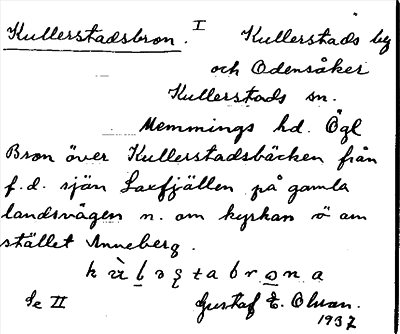 Kullerstadsbron. I Kullerstads by
och Odensåker
Kullerstads sn.
Memmings hd. Ögl
Bron över Kullerstadsbäcken från
f.d. sjön Laxfjällen på gamla
landsvägen n. om kyrkan ö om
stället Anneberg.
Se II Gustaf E. Olson.
1937